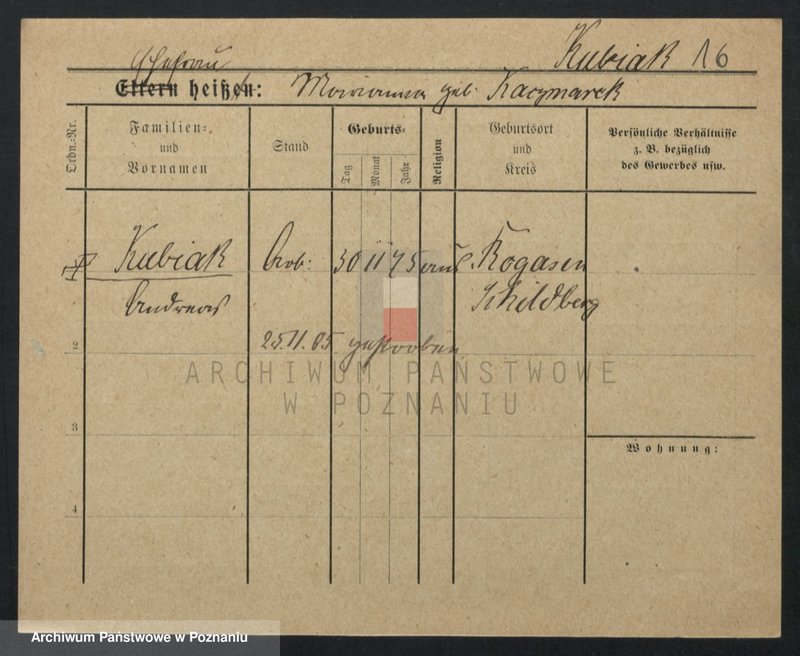 Kubiak 16
Ehefrau
Eltern heißen: Marianna geb. Kaczmarek
Ordn.-Nr.
Familien- und Vornamen
Stand
Geburts-
Tag
Monat
Jahr
Religion
Geburtsort und Kreis
Persönliche Verhältnisse z. B. bezüglich des Gewerbes usw.
Kubiak Arb: 30 11 75 Rogasen
Andreas Schildberg
2
25.11.05 gestorben
ARCHIWUM PAŃSTWOWE
W POZNANIU
3
Wohnung:
4
Archiwum Państwowe w Poznaniu